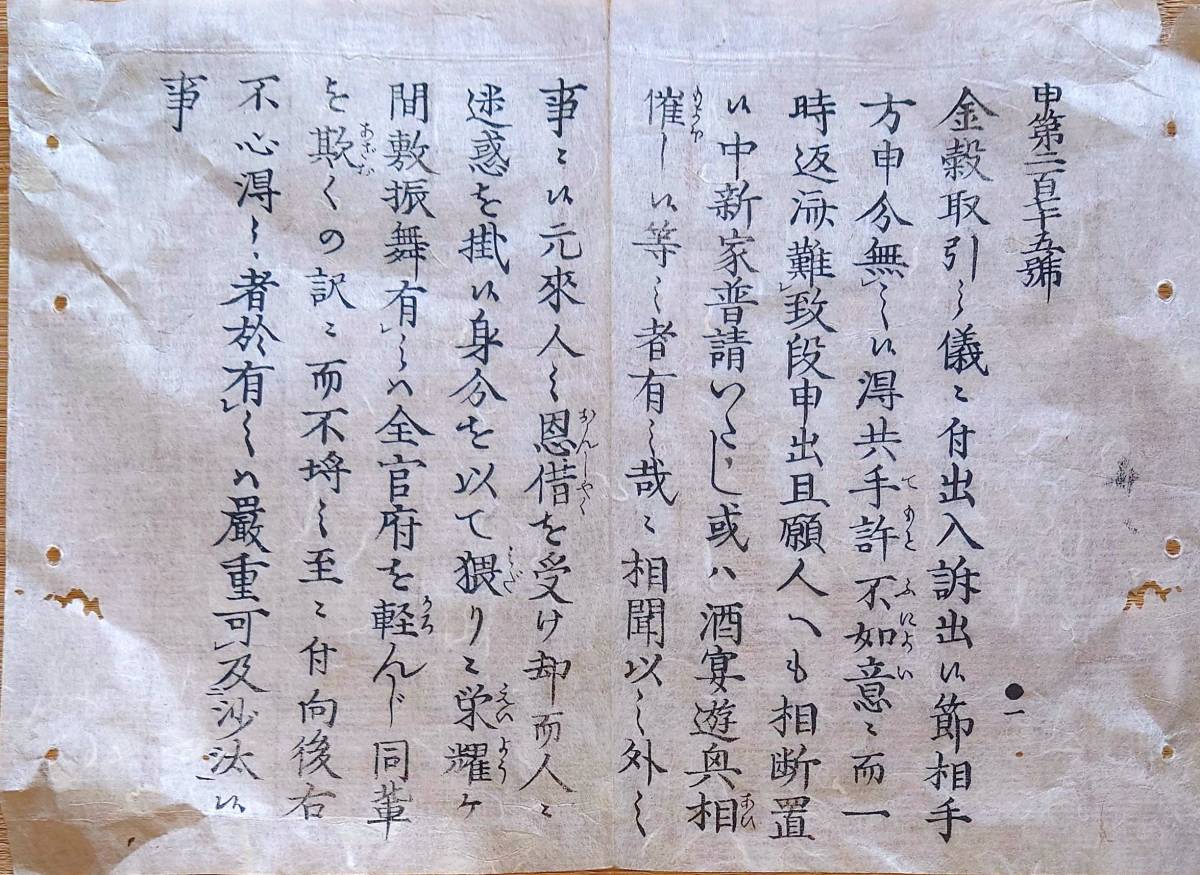 申第二百十五號
●一
金穀取引之儀ニ付出入訴出候節相手
方申分無之候得共手許不如意ニ而一
てもと ふによい
時返済難致段申出且願人へも相断置
候中新家普請いたし或ハ酒宴遊興相
あひ
催し候等之者有之哉ニ相聞以之外之
もよほ
事ニ候元來人之恩借を受け却而人ニ
おんしやく
迷惑を掛候身分を以て猥りニ栄耀ケ
みだ えいよう
間敷振舞有之ハ全官府を軽んじ同輩
かろ
を欺くの訳ニ而不埒之至ニ付向後右
あざむ
不心得之者於有之ハ嚴重可及沙汰候
事